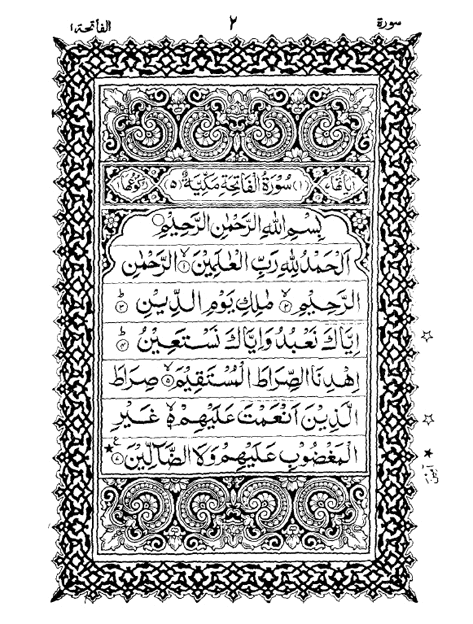 سورة ٢ الفاتحة ١
اٰیاتھا ٧ (١) سُوْرَةُ الْفَاتِحَةِ مَكِّيَّةٌ (٥) رُكُوْعُهَا ١
بِسْمِ اللّٰهِ الرَّحْمٰنِ الرَّحِيْمِ
اَلْحَمْدُ لِلّٰهِ رَبِّ الْعٰلَمِيْنَ ۙ﴿١﴾ الرَّحْمٰنِ
الرَّحِيْمِ ۙ﴿٢﴾ مٰلِكِ يَوْمِ الدِّيْنِ ؕ﴿٣﴾
اِيَّاكَ نَعْبُدُ وَاِيَّاكَ نَسْتَعِيْنُ ؕ﴿٤﴾
اِهْدِنَا الصِّرَاطَ الْمُسْتَقِيْمَ ۙ﴿٥﴾ صِرَاطَ
الَّذِيْنَ اَنْعَمْتَ عَلَيْهِمْ ۙ۬ غَيْرِ
الْمَغْضُوْبِ عَلَيْهِمْ وَلَا الضَّآلِّيْنَ